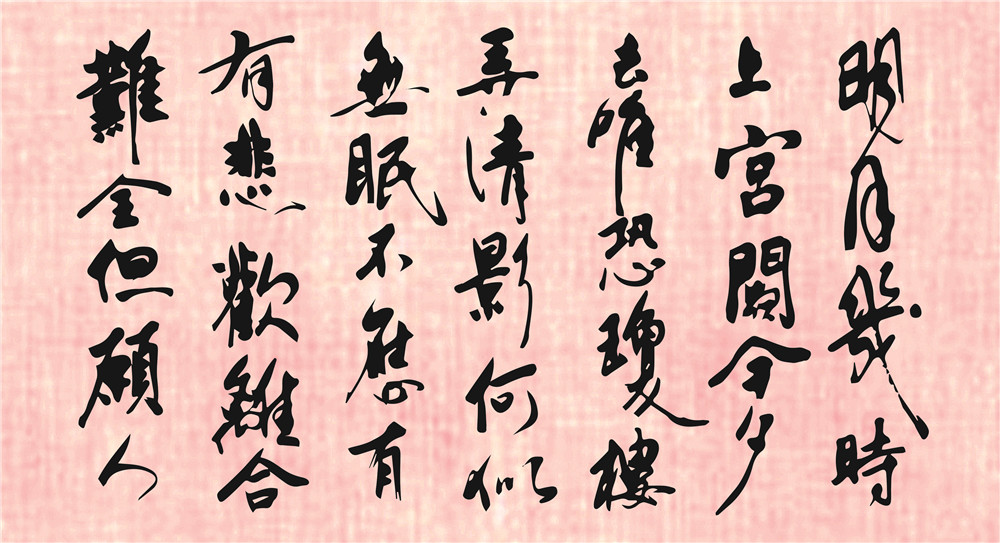 明月幾時
上宮闕今夕
去唯恐瓊樓
弄清影何似
無眠不應有
有悲歡離合
難全但願人